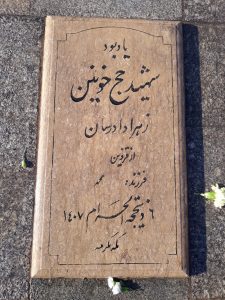 یادبود
شهید حج خونین
زهرا دادرسان
از قزوین
فرزند:
۶ ذیحجه الحرام ۱۴۰۷
مکه مکرمه